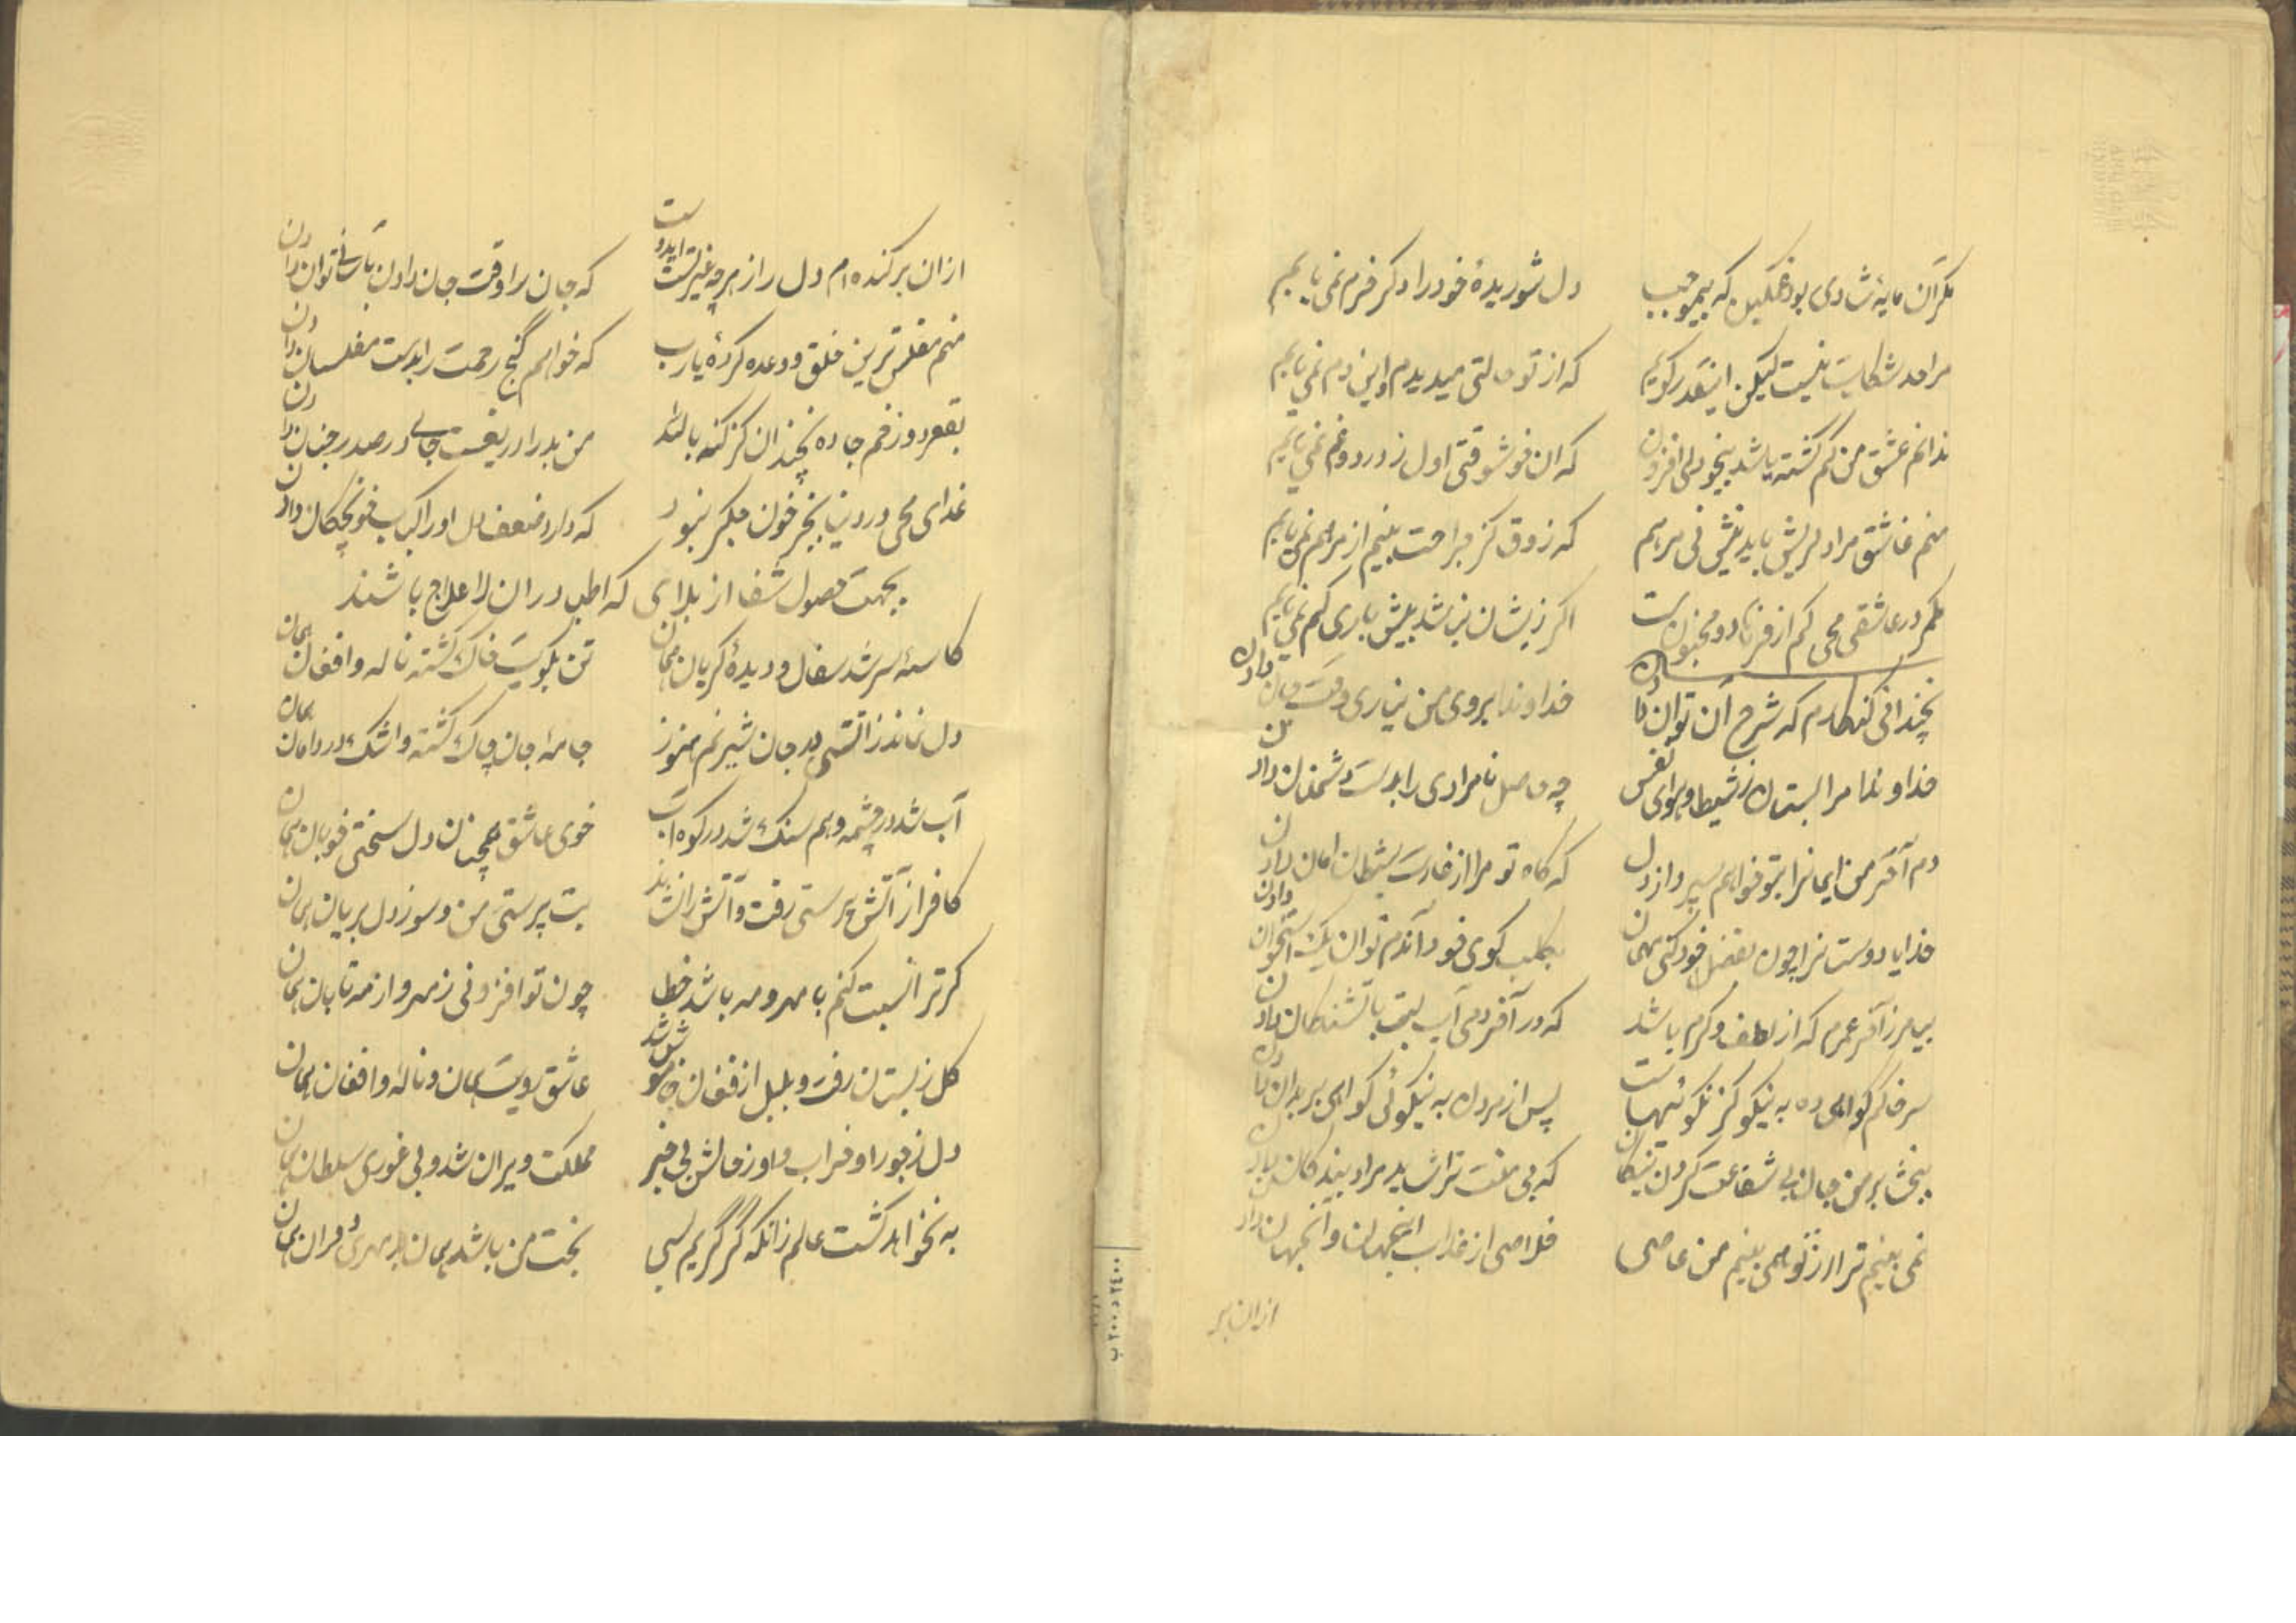 مگر آن مایهٔ شادی بود غمگین که بیموجب دل شوریدهٔ خود را دگر خرم نمی یابم
مرا حد شکایت نیست لیکن اینقدر گویم که از تو حالتی میدیدم و این دم نمی یابم
ندانم عشق من کم گشته یا شد بیخودی افزون که آن خوشوقتی اول ز درد و غم نمی یابم
منم عاشق مرا دلریش باید نیش نی مرهم که ذوق کز جراحت بینم از مرهم نمی یابم
مگر در عاشقی محی کم از فرهاد و مجنونست اگر زیشان نباشد بیش باری کم نمی یابم
بچندانی گنهکارم که شرح آن توان دادن خداوندا بروی من نیاری وقت جان دادن
خداوندا مرا مستان ز شیطا و هوای نفس چه حاصل نامرادی را بدست دشمنان دادن
دم آخر من ایمانرا بتو خواهم سپرد از دل که گاه تو مرا از غارت شیطان امان دادن
خدایا دوستانرا چون بفضل خود کنی مهمان بکلب کوی خود آندم توان یک استخوان دادن
بیامرز آخر عمرم که از لطف و کرم باشد که در آخر دمی آب لبت با تشنگان دادن
سر خاکم گواهی ده به نیکو کز نکوئیهاست پس از مردن به نیکوئی گواهی بر بدان دادن
ببخشا بر من جان بی شفاعت کردن نیکان که بی منت تراشد مراد بندگان دادن
نمی بینم ترا از تو همی بینم من عاصی خلاصی از عذاب اینجهان و آنجهان دادن
ازان بر
ازان برکنده ام دل را ز هرچه غیر تست ایدوست که جان را وقت جان دادن بآسانی توان دادن
منم مفلس ترین خلق و وعده کردهٔ یارب که خواهم گنج رحمت را بدست مفلسان دادن
بقعر دوزخم جا ده بچندان کز گنه بالله من بد را دریغست جای در صدر جنان دادن
غذای محی در دنیا بجز خون جگر نبود که دارد ضعف دل او را کباب خونچکان دادن
بجهت حصول شفا از بلای که اطبا در ان لاعلاج باشند
کاسهٔ سر شد سفال و دیدهٔ گریان همان تن بکویت خاک گشته ناله و افغان همان
دل نماند ز آتشی بد جان شیرنم هنوز جامهٔ جان چاک گشته و اشک در دامان همان
آب شد در چشمه و هم سنگ شد در کوه آب خوی عاشق همچنان دل سختی خوبان همان
کافر از آتش پرستی رفت و آتش را نشاند بت پرستی من و سوز دل بریان همان
گر ترا نسبت کنم با مهر و مه باشد خطا چون تو افزونی ز مهر و از مه تابان همان
گل ز بستان رفت و بلبل از فغان خاموش شد عاشق رویت همان و ناله و افغان همان
دل ز جور او خراب و او ز حالش بی خبر مملکت ویران شد و بی غوری سلطان همان
به نخواهد گشت عالم زانکه گر گریم بسی بخت من باشد همان بد مهری دوران همان